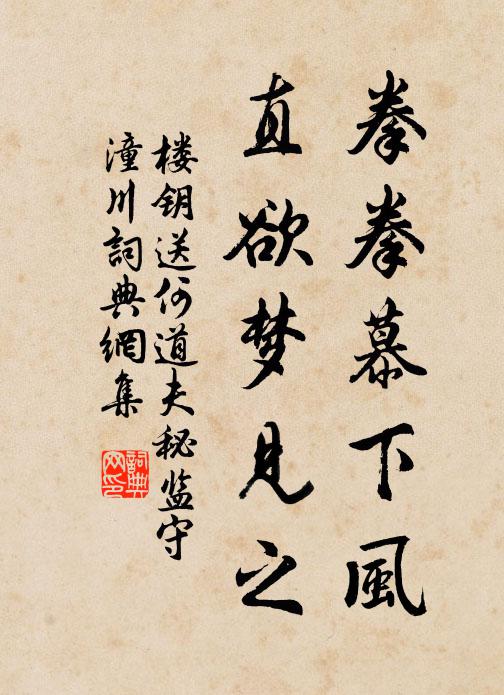 拳拳慕下風
直欲梦見之
楼钥送何道夫秘监守
潼川詞典網集
詞典
网印